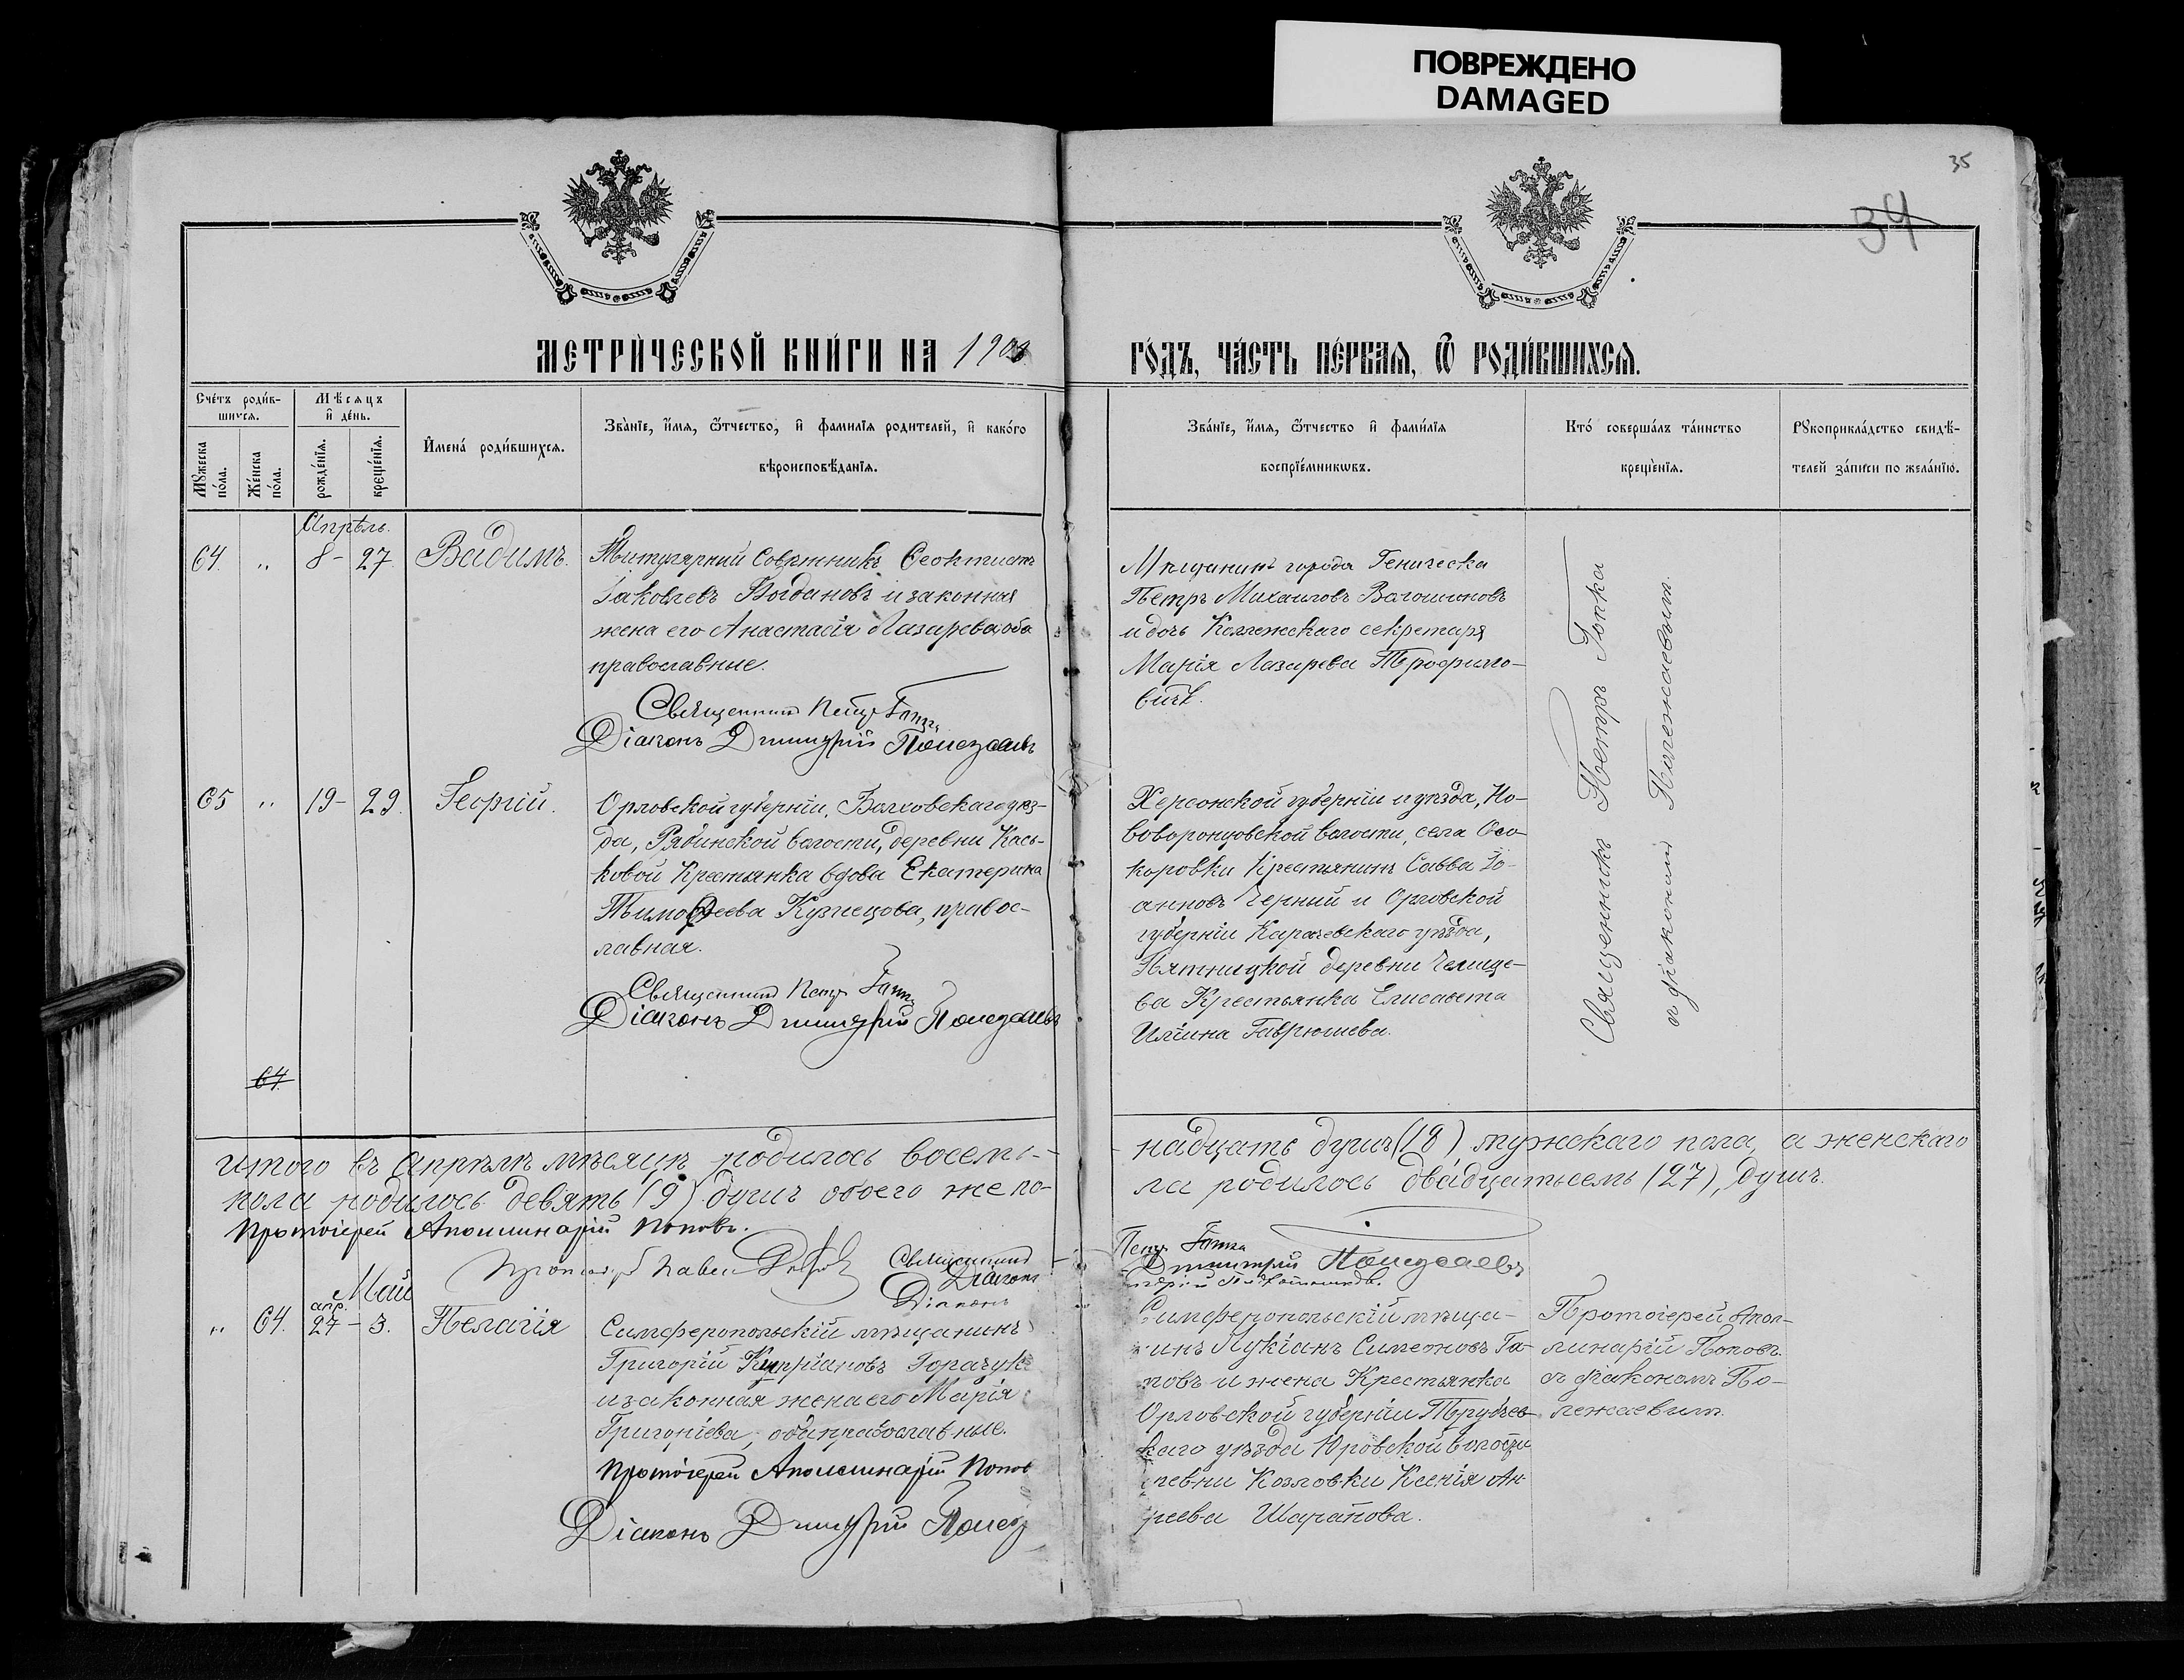 ПОВРЕЖДЕНО
DAMAGED
35
34
МЕТРИ́ЧЕСКОЙ КНИ́ГИ НА 190
ГО́ДЪ, ЧА́СТЬ ПЕ́РВАѦ, Ѿ РОДИ́ВШИХСѦ.
Сче́тъ роди́в-
шихся.
Мѣсяцъ
и де́нь.
Мꙋжеска по́ла.
Же́нска по́ла.
рожде́нїѧ.
креще́нїѧ.
Имена́ роди́вшихся.
Зва́нїе, и́мѧ, ѻ́тчество, и фами́лїѧ родителей, и како́го
вѣроисповѣ́данїѧ.
Зва́нїе, и́мѧ, ѻ́тчество и фами́лїѧ
воспрїе́мникѡвъ.
Кто́ соверша́лъ та́инство
креще́нїѧ.
Рꙋкоприкла́дство свидѣ́-
телей за́писи по жела́нїю.
Апрѣль.
64. " 8 - 27. Вадимъ.
Титулярный Совѣтникъ Ѳеоктистъ
Іаковлевъ Богдановъ и законная
жена его Анастасія Лазарева оба
православные.
Священникъ Петръ Гопка
Діаконъ Дмитрій Полежаевъ
Мѣщанинъ города Геническа
Петръ Михаиловъ Волошиновъ
и дочь Коллежскаго секретаря
Марія Лазарева Трофимо-
вичъ.
Священникъ Петръ Гопка
съ діакономъ Полежаевымъ.
65 " 19 - 29. Георгій.
Орловской губерніи, Болховскаго уѣз-
да, Рябинской волости, деревни Кась-
ковой Крестьянка вдова Екатерина
Тимоѳеева Кузнецова, правос-
лавная.
Священникъ Петръ Гопка
Діаконъ Дмитрій Полежаевъ
Херсонской губерніи и уѣзда, Но-
воворонцовской волости, села Осо-
коровки Крестьянинъ Савва Іо-
анновъ Черный и Орловской
губерніи Карачевскаго уѣзда,
Пятницкой деревни Челище-
ва Крестьянка Елисавета
Ильина Гаврюшева.
64.
Итого въ Апрѣлѣ мѣсяцѣ родилось восемь-
надцать душъ (18), мужскаго пола, а женскаго
пола родилось девять (9) душъ обоего же по-
ла родилось двадцать семь (27), душъ.
Протоіерей Аполлинарій Поповъ.
Павелъ
Священникъ
Петръ Гопка
Діаконъ
Дмитрій Полежаевъ
Діаконъ
Май
апр.
" 64. 27 - 3. Пелагія
Симферопольскій мѣщанинъ
Григорій Кипріановъ Горачукъ
и законная жена его Марія
Григоріева, оба православные.
Протоіерей Аполлинарій Попов
Діаконъ Дмитрій Полеж
имферопольскій мѣща-
инъ Лукіанъ Симеоновъ Га-
повъ и жена Крестьянка
Орловской губерніи Трубчев-
каго уѣзда Юровской волости
ревни Козловки Ксенія Ан
реева Шарапова.
Протоіерей Апол-
линарій Поповъ
съ діакономъ По-
лежаевым.